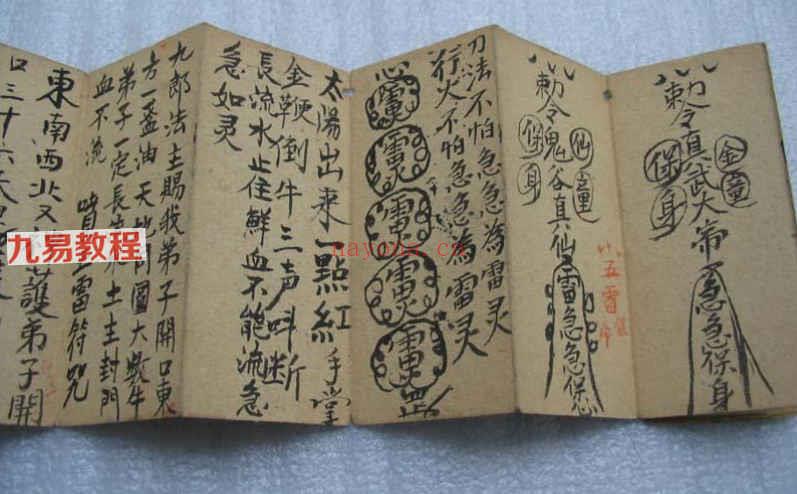 勅令真武大帝急急保身
金童
保身
勅令鬼谷真仙雷急急保
仙童
保身
五雷
刀法不怕急急為雷灵
行火不怕急急為雷灵
雷灵
雷灵
雷灵
雷灵
雷灵
太陽出来一點紅手掌
金鞭倒牛三声叫断
長流水止住鮮血不能流急
急如灵
九郎法主賜我弟子開口東
方一盏油天 大 牛
弟子一定長 土主封門
血不流 雷符咒
東南西北又 護弟子開
口三十六天
九易教程
nayona.cn